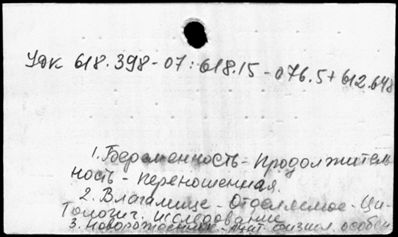 УДК 618.398-07:618.15-076.5+612.648
1. Беременность - Продолжитель
ность - Переношенная.
2. Влагалище - Отделяемое - Ци-
тологич. исследование
3. Новорожденный - физиол. особен